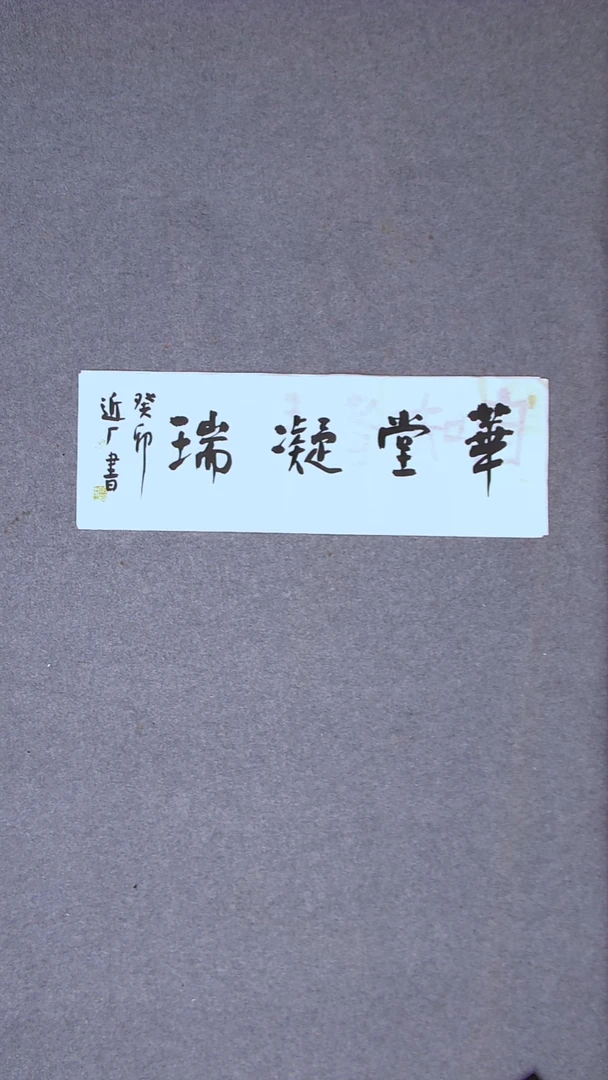 華堂凝瑞
癸卯
近厂書